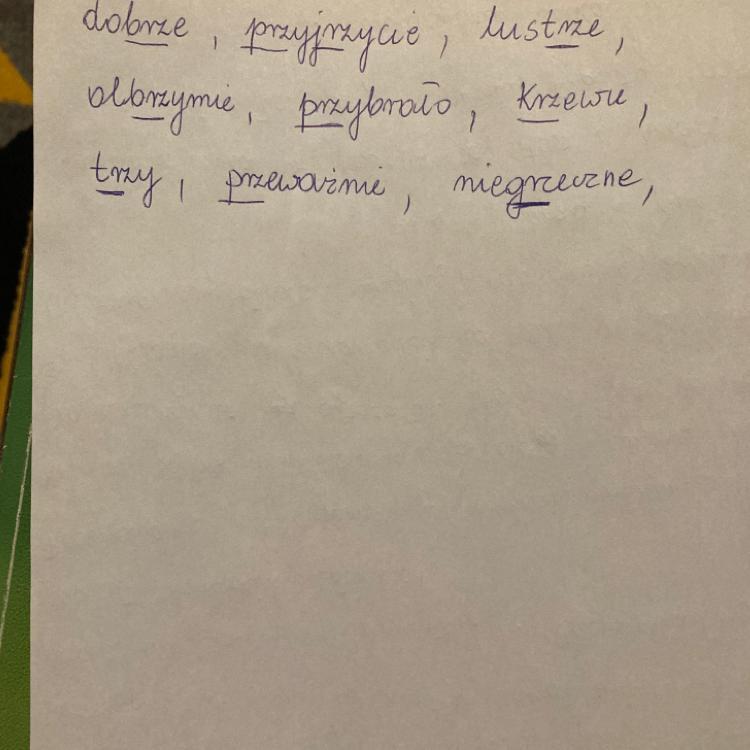 dobrze, przyjrzycie, lustrze,
olbrzymie, przybrało, krzewu,
trzy, przeważnie, niegrzeczne,